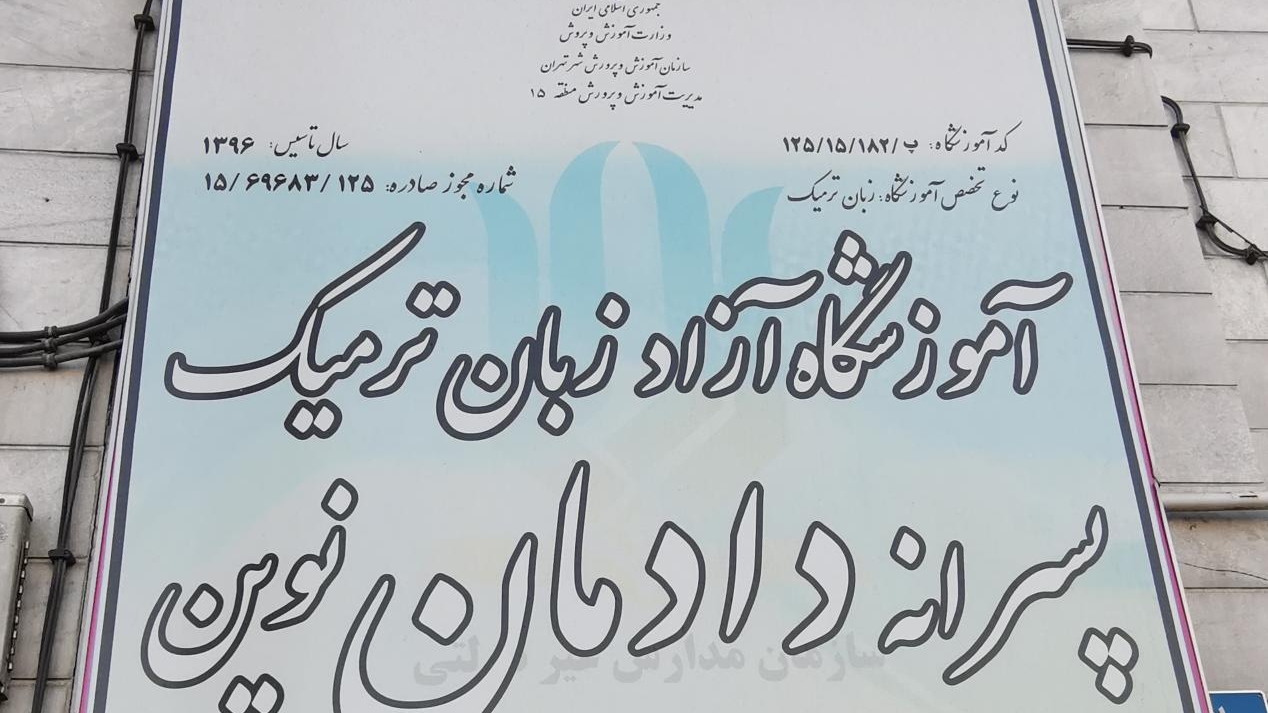 جمهوری اسلامی ایران
وزارت آموزش و پرورش
سازمان آموزش و پرورش شهر تهران
مدیریت آموزش و پرورش منطقه ۱۵
کد آموزشگاه: پ/۱۲۵/۱۵/۱۸۲
سال تاسیس: ۱۳۹۶
نوع تخصص آموزشگاه: زبان ترمیک
شماره مجوز صادره: ۱۵/۶۹۶۸۳/۱۲۵
آموزشگاه آزاد زبان ترمیک
پسرانه دادمان نوین
سازمان مدارس غیر دولتی